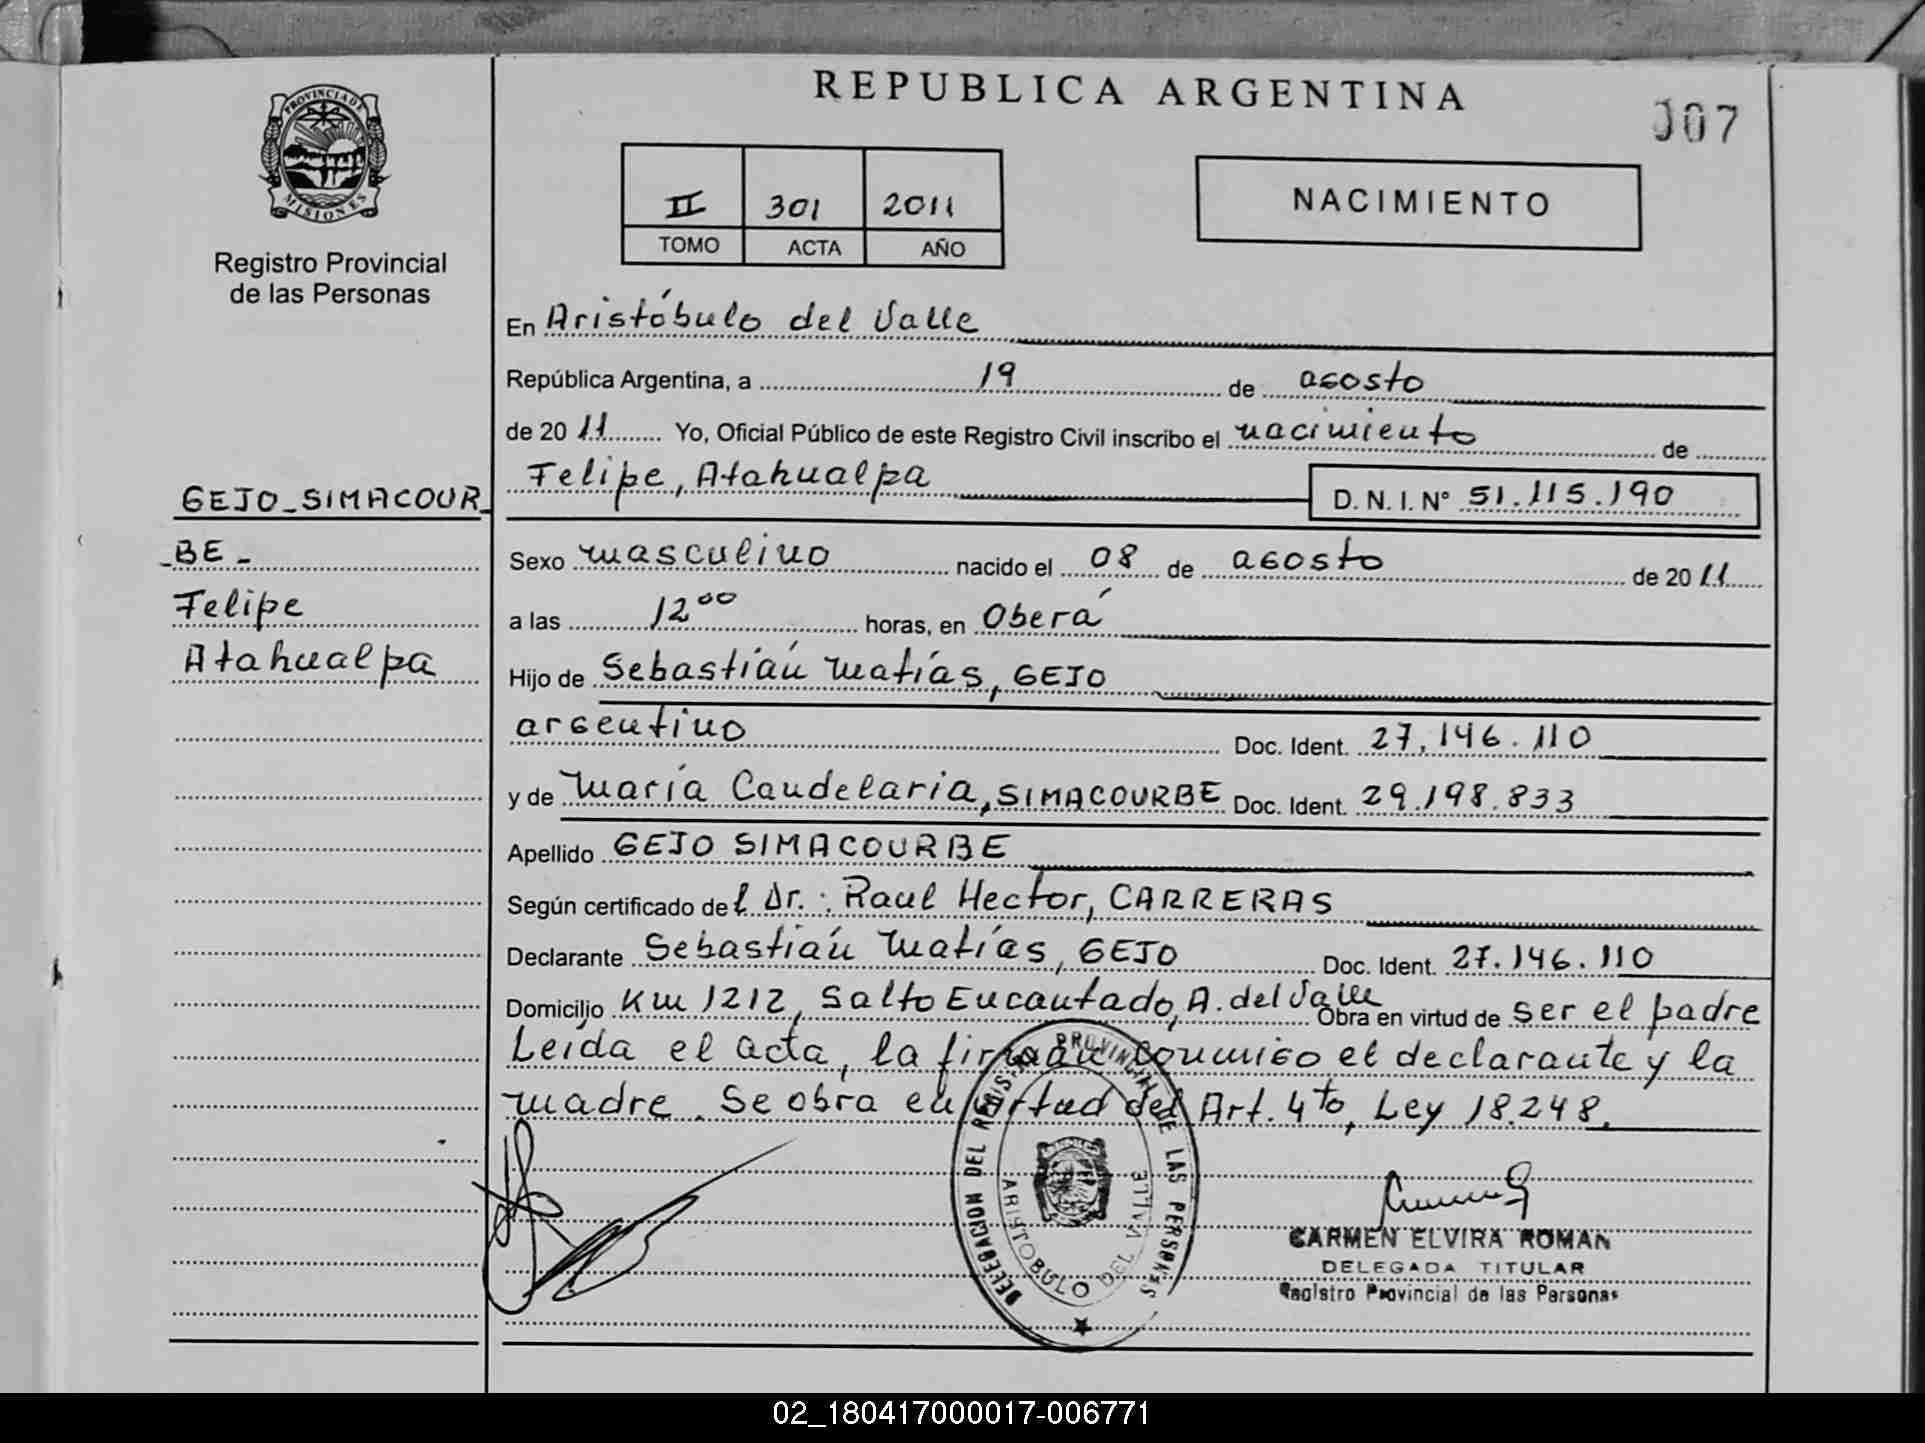 REPUBLICA ARGENTINA
007
PROVINCIA DE
MISIONES
Registro Provincial
de las Personas
II 301 2011
TOMO ACTA AÑO
NACIMIENTO
En Aristóbulo del Valle
República Argentina, a 19 de agosto
de 2011 Yo, Oficial Público de este Registro Civil inscribo el nacimiento de
Felipe, Atahualpa D. N. I. Nº 51.115.190
GEJO_SIMACOUR_
_BE_
Felipe
Atahualpa
Sexo masculino nacido el 08 de agosto de 2011
a las 12⁰⁰ horas, en Oberá
Hijo de Sebastián Matías, GEJO
argentino Doc. Ident. 27.146.110
y de María Candelaria, SIMACOURBE Doc. Ident. 29.198.833
Apellido GEJO SIMACOURBE
Según certificado del Dr.: Raul Hector, CARRERAS
Declarante Sebastián Matías, GEJO Doc. Ident. 27.146.110
Domicilio Km 1212, Salto Encantado, A. del Valle Obra en virtud de ser el padre
Leída el acta, la firman conmigo el declarante y la
madre. Se obra en virtud del Art. 4to, Ley 18.248.
DELEGACION DEL REGIS. PROVINCIAL DE LAS PERSONAS
ARISTOBULO DEL VALLE
CARMEN ELVIRA ROMAN
DELEGADA TITULAR
Registro Provincial de las Personas
02_180417000017-006771